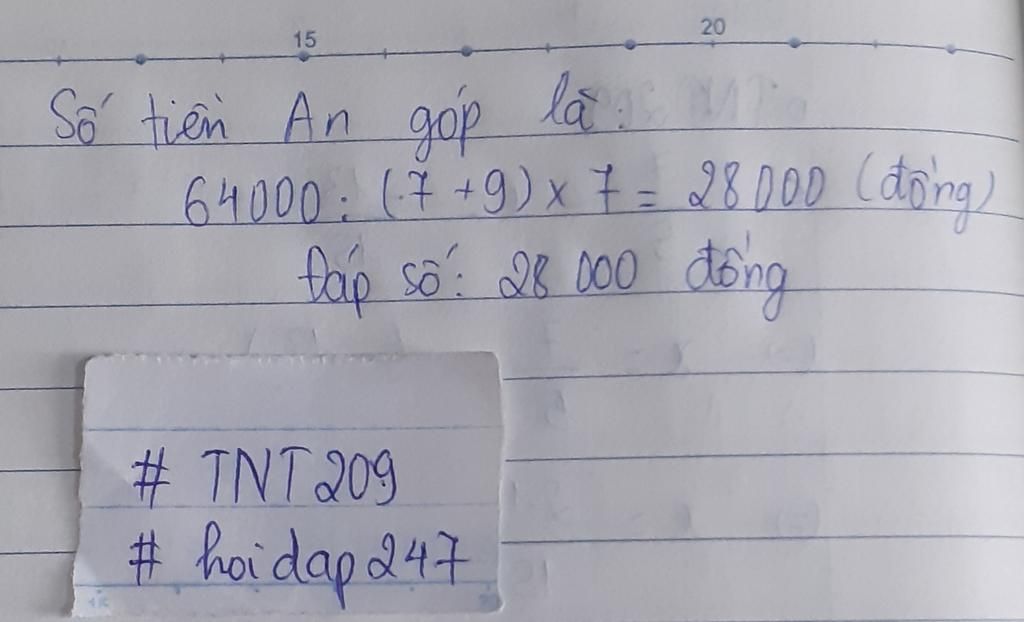 15 20
Số tiền An góp là:
64000 : (7 + 9) x 7 = 28 000 (đồng)
Đáp số: 28 000 đồng
# TNT209
# hoidap247